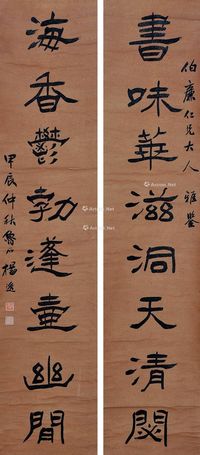 伯廉仁兄大人 雅鑒
書味華滋洞天清閟
海香鬱勃蓬壺幽閒
甲辰仲秋魯石楊逸